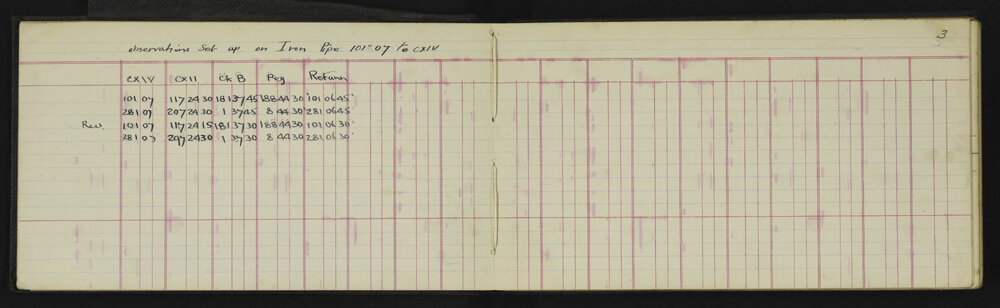 3
observations set up on Iron Pipe 101° 07 to CXIV
CXIV CXII CK B Peg Return
101 07 117 24 30 181 37 45 188 44 30 101 06 45
281 07 207 24 30 1 37 45 8 44 30 281 06 45
Rev. 101 07 117 24 15 181 37 30 188 44 30 101 06 30
281 07 297 24 30 1 37 30 8 44 30 281 06 30